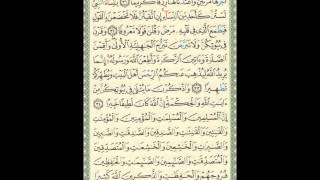 أَجْرَهَا مَرَّتَيْنِ وَأَعْتَدْنَا لَهَا رِزْقًا كَرِيمًا ٣١ يَٰنِسَآءَ ٱلنَّبِيِّ
لَسْتُنَّ كَأَحَدٍ مِّنَ ٱلنِّسَآءِ إِنِ ٱتَّقَيْتُنَّ فَلَا تَخْضَعْنَ بِٱلْقَوْلِ
فَيَطْمَعَ ٱلَّذِي فِي قَلْبِهِۦ مَرَضٌ وَقُلْنَ قَوْلًا مَّعْرُوفًا ٣٢ وَقَرْنَ
فِي بُيُوتِكُنَّ وَلَا تَبَرَّجْنَ تَبَرُّجَ ٱلْجَٰهِلِيَّةِ ٱلْأُولَىٰ وَأَقِمْنَ
ٱلصَّلَوٰةَ وَءَاتِينَ ٱلزَّكَوٰةَ وَأَطِعْنَ ٱللَّهَ وَرَسُولَهُۥٓ إِنَّمَا
يُرِيدُ ٱللَّهُ لِيُذْهِبَ عَنكُمُ ٱلرِّجْسَ أَهْلَ ٱلْبَيْتِ وَيُطَهِّرَكُمْ
تَطْهِيرًا ٣٣ وَٱذْكُرْنَ مَا يُتْلَىٰ فِي بُيُوتِكُنَّ مِنْ
ءَايَٰتِ ٱللَّهِ وَٱلْحِكْمَةِ إِنَّ ٱللَّهَ كَانَ لَطِيفًا خَبِيرًا ٣٤
إِنَّ ٱلْمُسْلِمِينَ وَٱلْمُسْلِمَٰتِ وَٱلْمُؤْمِنِينَ وَٱلْمُؤْمِنَٰتِ
وَٱلْقَٰنِتِينَ وَٱلْقَٰنِتَٰتِ وَٱلصَّٰدِقِينَ وَٱلصَّٰدِقَٰتِ
وَٱلصَّٰبِرِينَ وَٱلصَّٰبِرَٰتِ وَٱلْخَٰشِعِينَ وَٱلْخَٰشِعَٰتِ وَٱلْمُتَصَدِّقِينَ
وَٱلْمُتَصَدِّقَٰتِ وَٱلصَّٰٓئِمِينَ وَٱلصَّٰٓئِمَٰتِ وَٱلْحَٰفِظِينَ
فُرُوجَهُمْ وَٱلْحَٰفِظَٰتِ وَٱلذَّٰكِرِينَ ٱللَّهَ كَثِيرًا